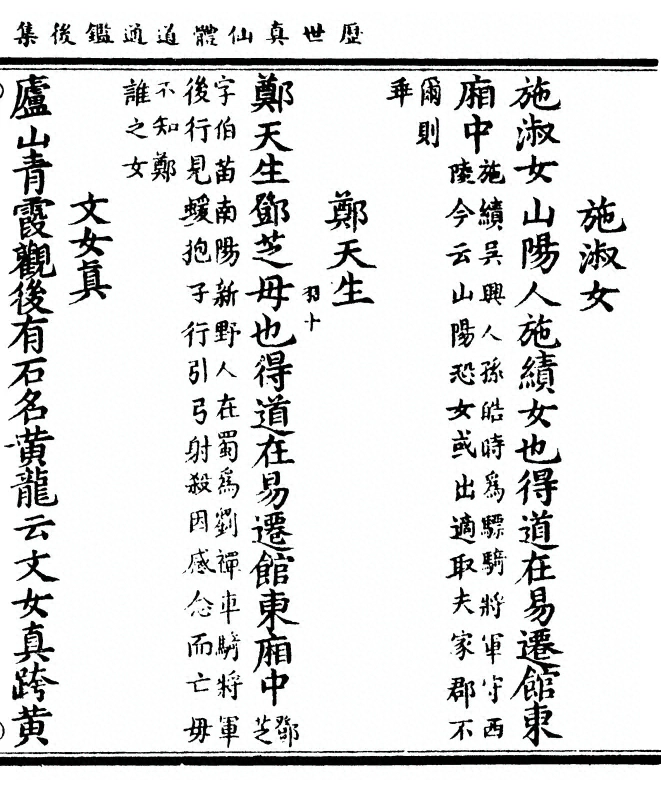 歷世真仙體道通鑑後集
施淑女
施淑女山陽人施績女也得道在易遷館東
廂中
施績吳興人孫皓時為驃騎將軍守西
陵今云山陽恐女或出適取夫家郡不
爾則
乖
羽十
鄭天生
鄭天生鄧芝母也得道在易遷館東廂中
鄧
芝
字伯苗南陽新野人在蜀為劉禪車騎將軍
後行見蝯抱子行引弓射殺因感念而亡毋
不知鄭
誰之女
文女真
廬山青霞觀後有石名黃龍云文女真跨黃